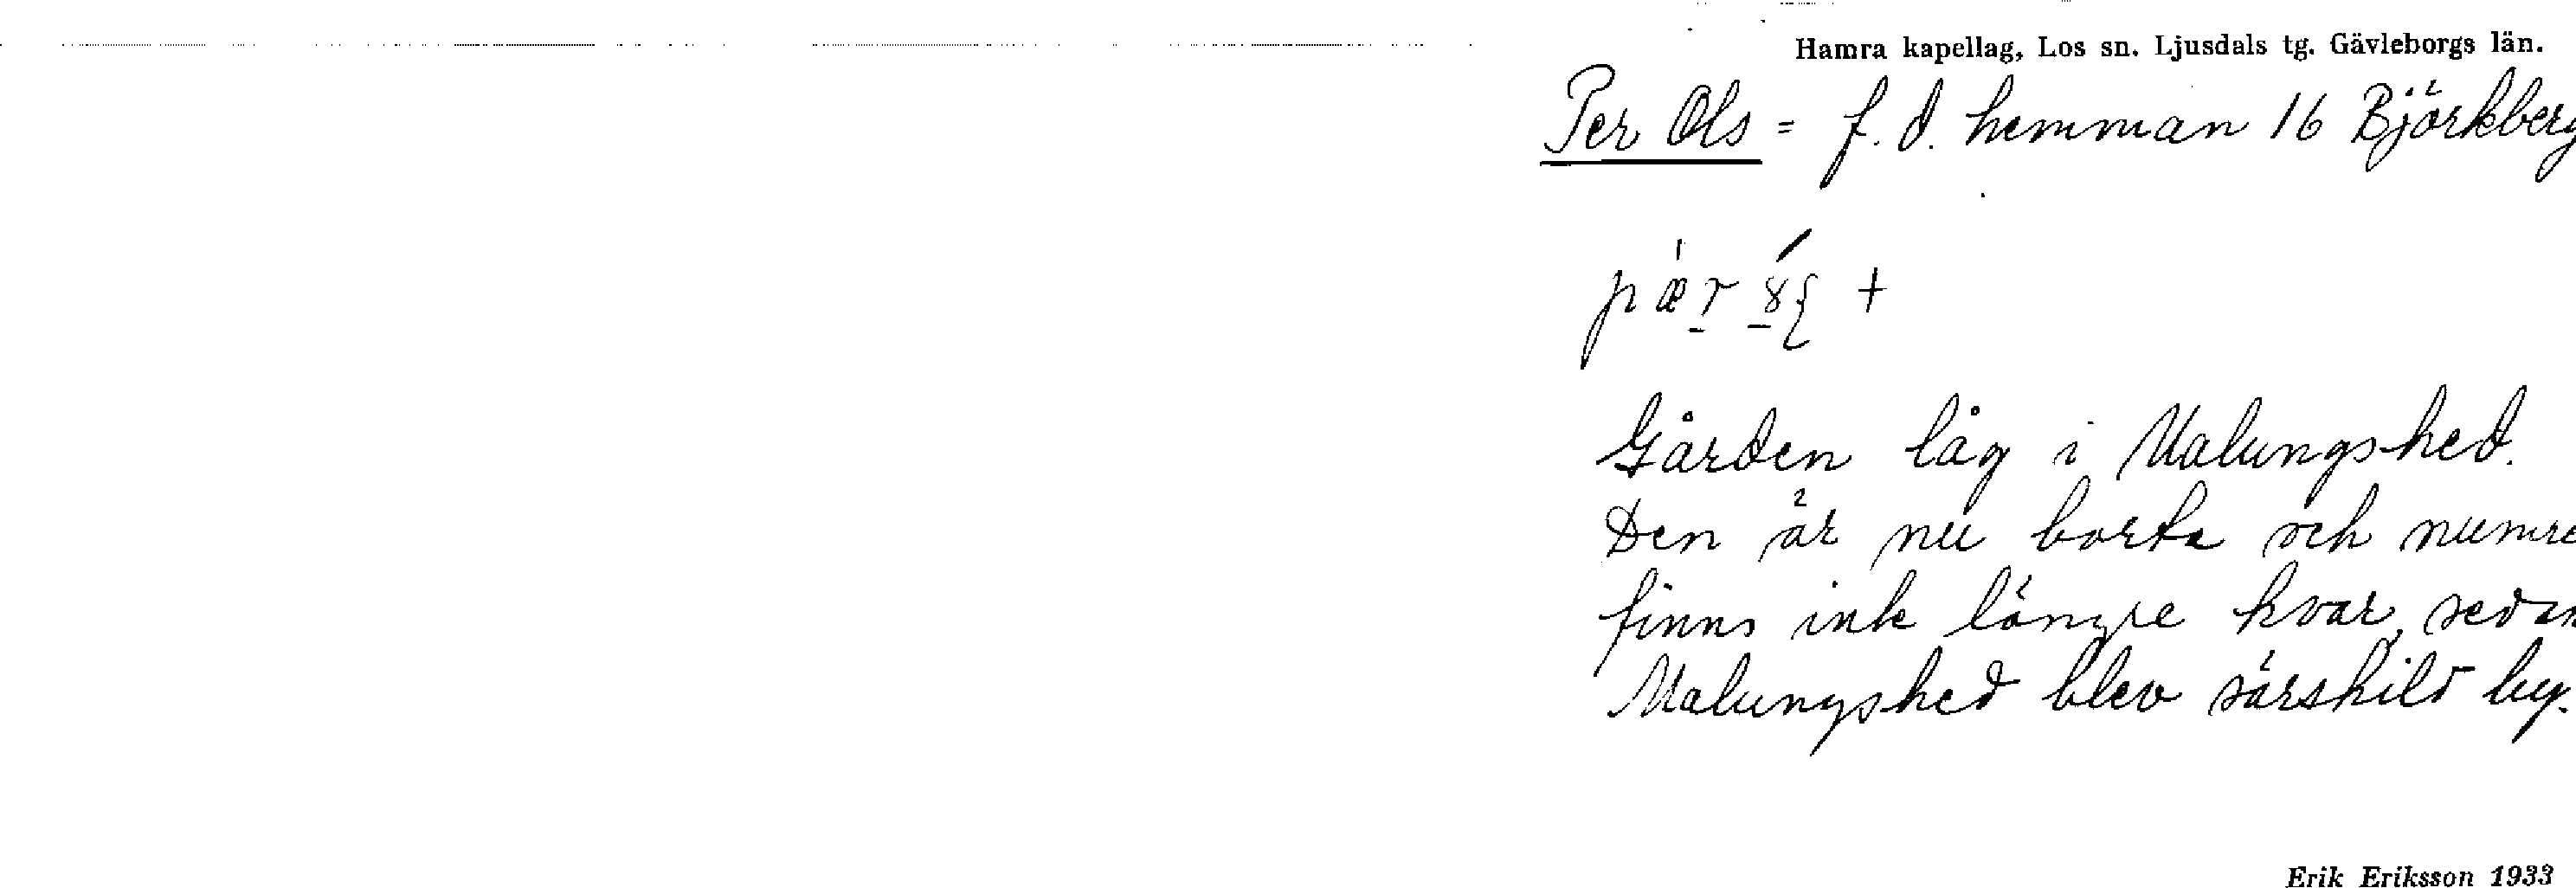 Hamra kapellag, Los sn. Ljusdals tg. Gävleborgs län.
Per Ols = f. d. hemman 16 Björkberg
Gården låg i Malungshed.
Den är nu borta och numre
finns inte längre kvar, sedan
Malungshed blev särskild by.
Erik Eriksson 1933